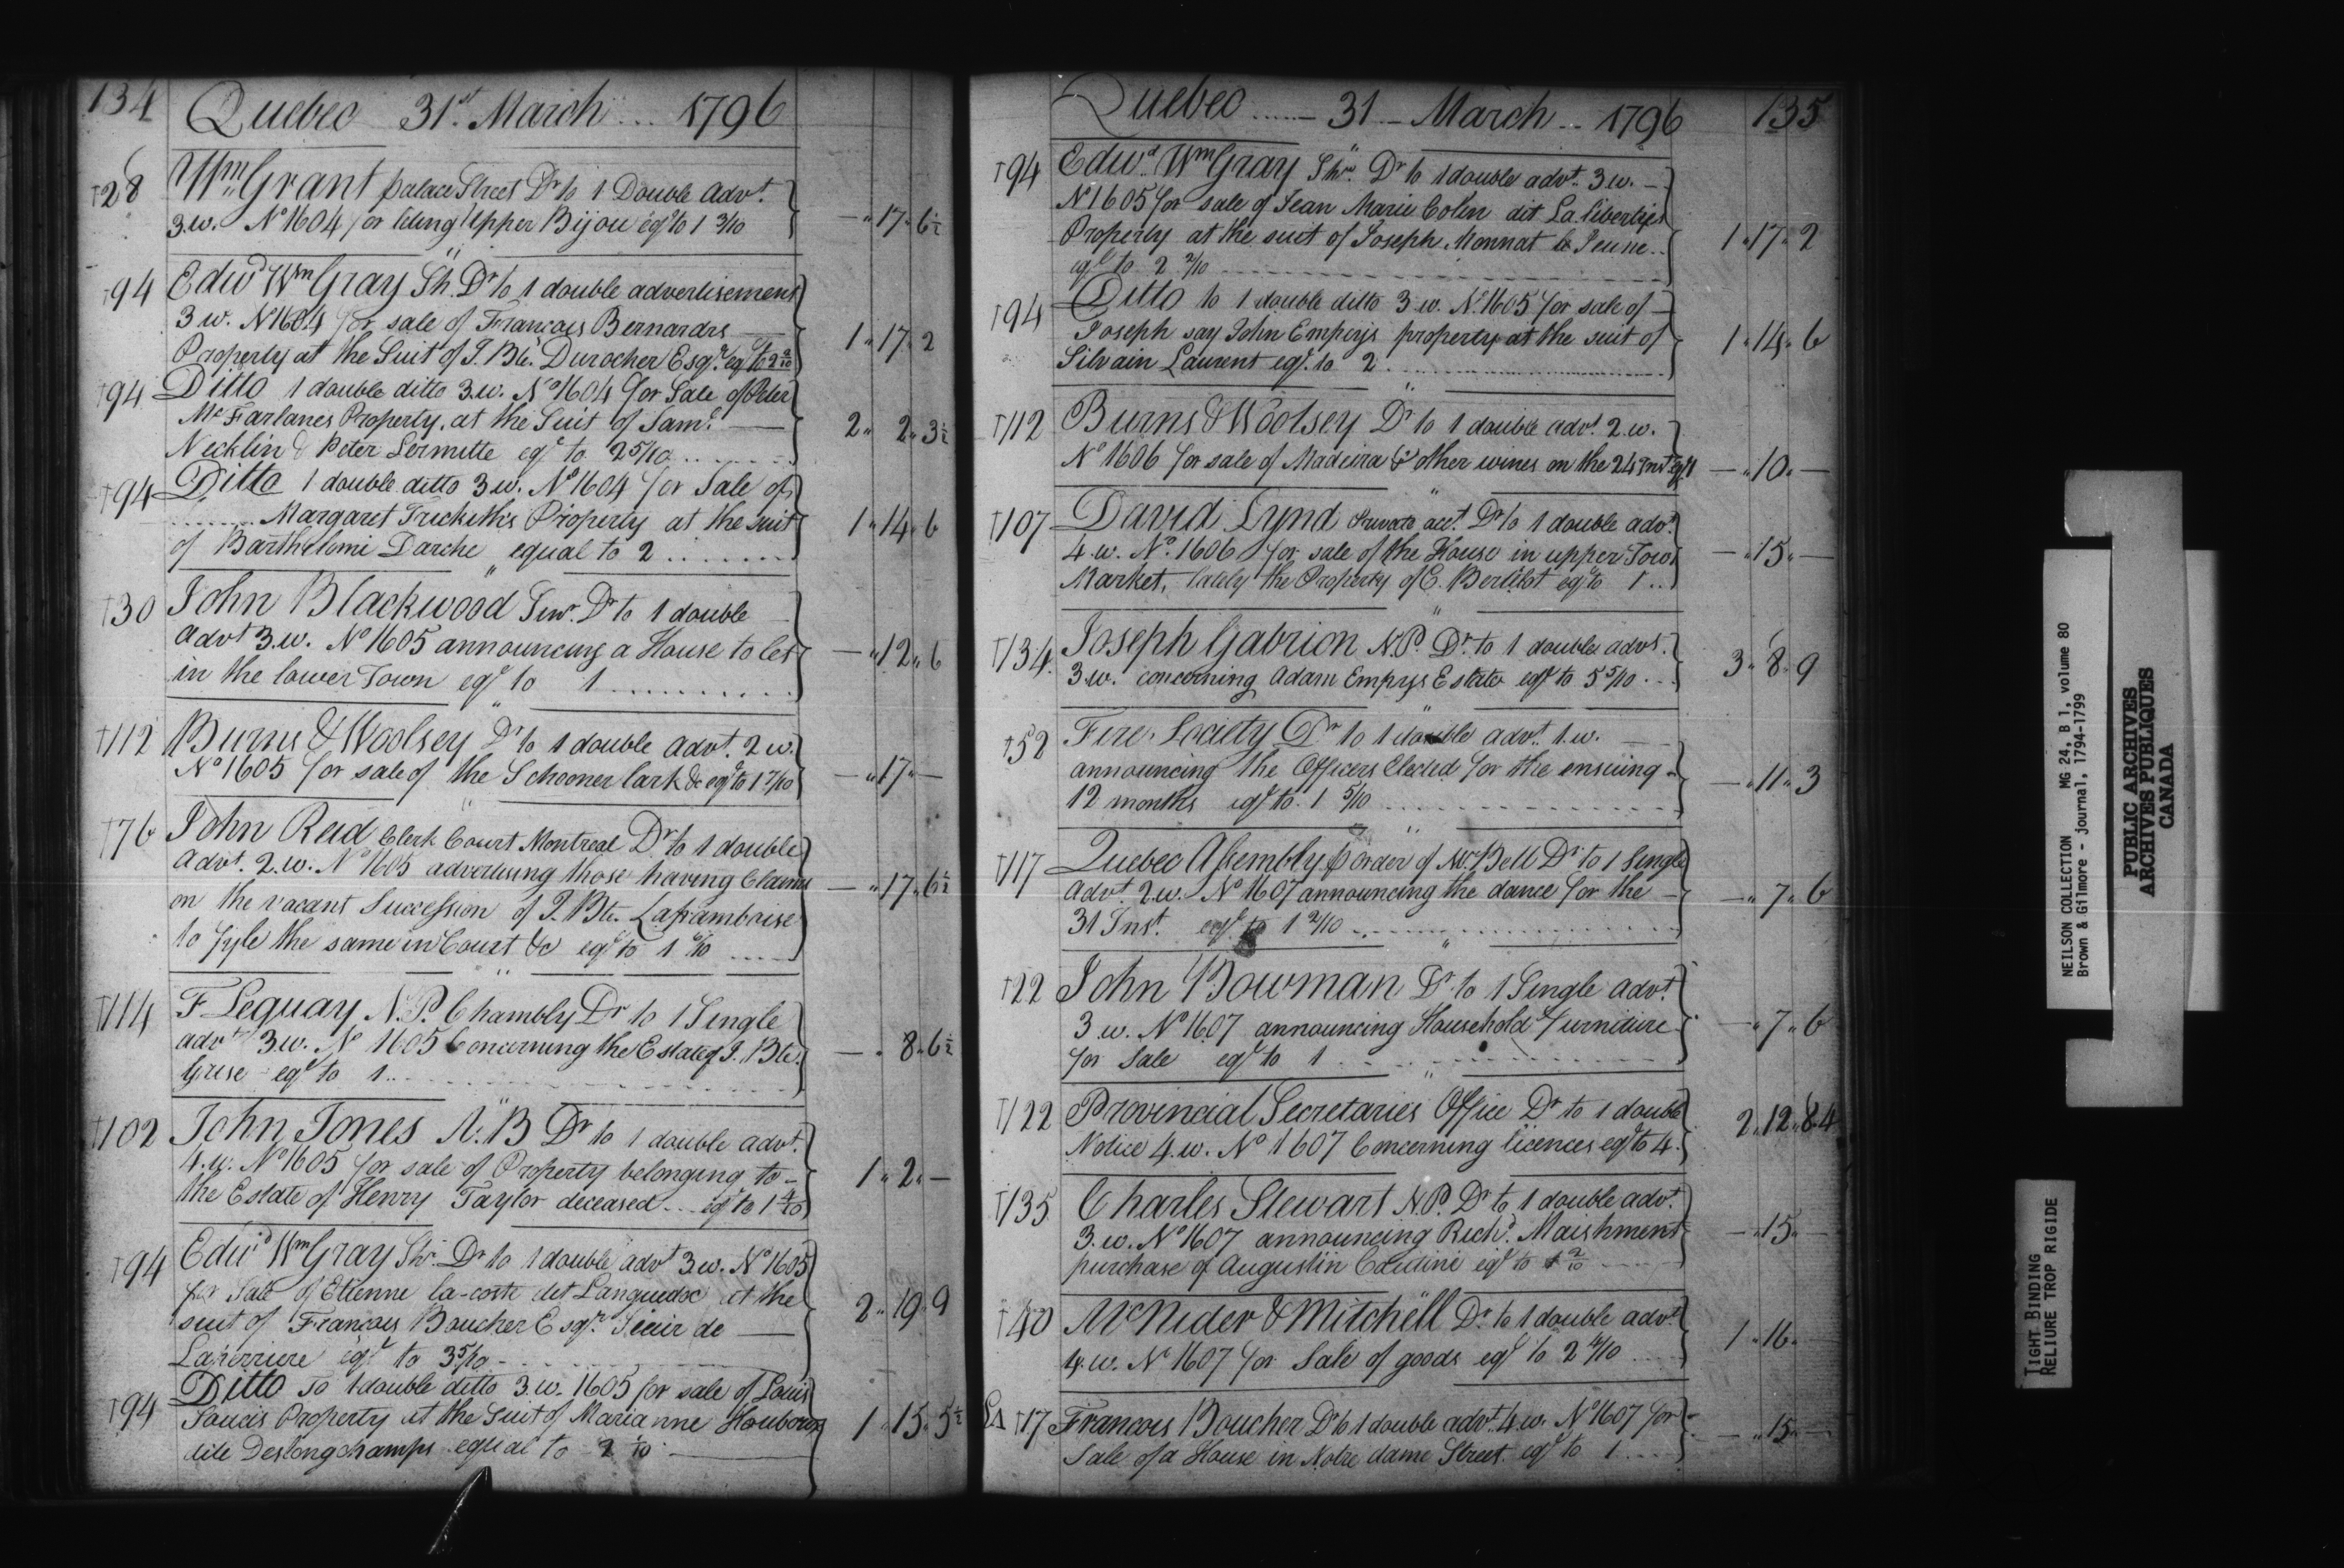 134
Quebec 31st March ... 1796
†28 Wm Grant palace Street Dr to 1 Double Advt.
3.w. No 1604 for leting Upper Bijou eql to 1 3/10 — „ 17 „ 6½
†94 Edwd Wm Gray Sh. Dr to 1 double advertisement
3 w. No 1604 for sale of François Bernardrs
Property at the Suit of J. Bte. Durocher Esqr. eql to 2 2/10 1 „ 17 „ 2
†94 Ditto 1 double ditto 3.w. No 1604 for Sale of Peter
McFarlanes Property, at the Suit of Saml.
Necklin & Peter Lermitte eql to 2 5/10 2 „ 2 „ 3½
†94 Ditto 1 double ditto 3 w. No 1604 for Sale of
Margaret Trickett's Property at the suit
of Barthelemi Darche equal to 2 1 „ 14 „ 6
†30 John Blackwood Dr to 1 double
advt 3.w. No 1605 announcing a House to let
in the lower Town eql to 1 — „ 12 „ 6
†112 Burns & Woolsey Dr to 1 double advt. 2 w.
No 1605 for sale of the Schooner lark &c eql to 1 7/10 — „ 17 „ —
†76 John Reid Clerk Court Montreal Dr to 1 double
advt. 2.w. No 1605 advertising those having Claims
on the vacant Succession of J. Bte. Laframboise
to fyle the same in Court &c eql to 1 — „ 17 „ 6½
†114 F Leguay N.P. Chambly Dr to 1 Single
advt 3.w. No 1605 Concerning the Estate of J. Bte.
Grise eql to 1 — „ 8 „ 6½
†102 John Jones A:B Dr to 1 double advt.
4.w. No 1605 for sale of Property belonging to
the Estate of Henry Taylor deceased... eql to 1 4/10 1 „ 2 „ —
†94 Edwd Wm Gray Shr. Dr to 1 double advt 3 w. No 1605
for Sale of Etienne la-coste dit Languedoc at the
suit of François Boucher Esqr. Sieur de
Laperriere eql to 3 5/10 2 „ 19 „ 9
†94 Ditto To 1 double ditto 3.w. 1605 for sale of Louis
Soucis Property at the Suit of Marianne
dite Deslongchamps equal to 2 1/10 1 „ 15 „ 5½
Quebec ... 31 — March ... 1796 135
†94 Edwd. Wm Gray Shr. Dr to 1 double advt. 3 w.
No 1605 for sale of Jean Marie Colin dit La libertijs
Property at the suit of Joseph Monnat le Jeune
eql to 2 2/10 1 „ 17 „ 2
†94 Ditto to 1 double ditto 3 w. No. 1605 for sale of
Joseph say John Emperys property at the suit of
Silvain Laurent eql. to 2 1 „ 14 „ 6
†112 Burns & Woolsey Dr to 1 double advt. 2.w.
No 1606 for sale of Madeira & other wines on the 24 Inst eql 1 — „ 10 „ —
†107 David Lynd Private acct. Dr to 1 double advt.
4.w. No. 1606 for sale of the House in upper Town
Market, lately the Property of C. Bertilot eql to 1 — „ 15 „ —
†134 Joseph Gabrion N.P. Dr. to 1 double advt.
3.w. concerning Adam Emprys Estate eql to 5 5/10 3 „ 8 „ 9
†52 Fire Society Dr to 1 double advt. 1.w.
announcing the Officers Elected for the ensuing
12 months eql to. 1 5/10 — „ 11 „ 3
†117 Quebec Assembly ⅌ order of Mr Bell Dr to 1 Single
advt. 2.w. No 1607 announcing the dance for the
31 Inst. eql to 1 2/10 — „ 7 „ 6
†22 John Bowman Dr to 1 Single advt.
3 w. No 1607 announcing Household Furniture
for Sale eql to 1 — „ 7 „ 6
†122 Provincial Secretaries Office Dr to 1 double
Notice 4.w. No 1607 Concerning licences eql to 4. 2 „ 12 „ 8.4
†135 Charles Stewart N.P. Dr to 1 double advt.
3.w. No 1607 announcing Richd. Maishment
purchase of Augustin eql to 1 2/10 — „ 15 „ —
†40 McNider & Mitchell Dr to 1 double advt.
4.w. No 1607 for Sale of goods eql to 2 4/10 1 „ 16 „
†17 Francois Boucher Dr to 1 double advt. 4.w. No 1607 for
Sale of a House in Notre dame Street eql to 1 — „ 15 „ —
NEILSON COLLECTION MG 24, B 1, volume 80
Brown & Gilmore - journal, 1794-1799
PUBLIC ARCHIVES
ARCHIVES PUBLIQUES
CANADA
TIGHT BINDING
RELIURE TROP RIGIDE